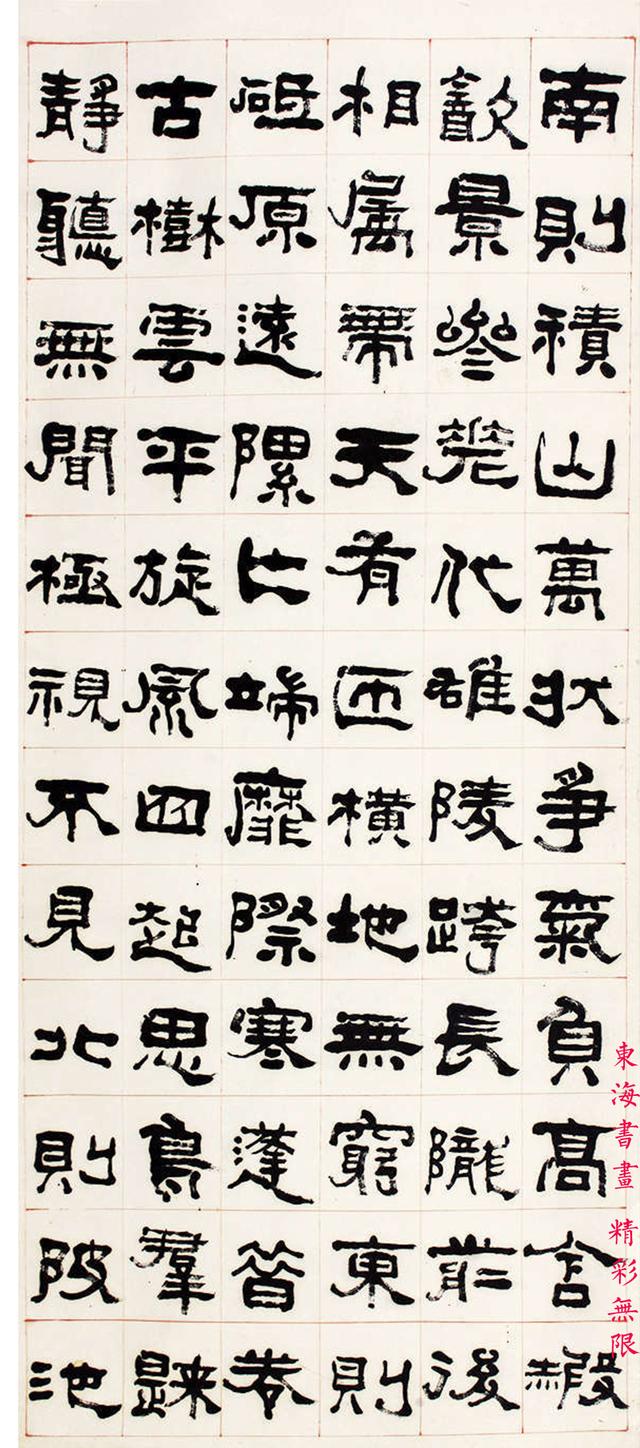 南則積山萬狀爭氣負高含赮
㱃景參差代雄陵跨長隴歬後
相属帶天有匝橫地無窮東則
砥原遠隰亡端靡際寒蓬昔卷
古樹雲平旋風四起思鳥羣歸
靜聽無聞極視不見北則陂池
東海書畫 精彩無限